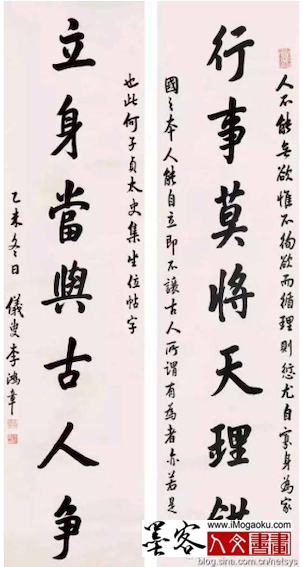 人不能無欲惟不徇欲而循理則愆尤自寡身為家
行事莫將天理錯
國之本人能自立即不讓古人所謂有為者亦若是
也此何子貞太史集坐位帖字
立身當與古人争
乙未冬日 儀叟李鴻章
墨客
www.iMogaoku.com
人文書畫
blog.sina.com.cn/netsys